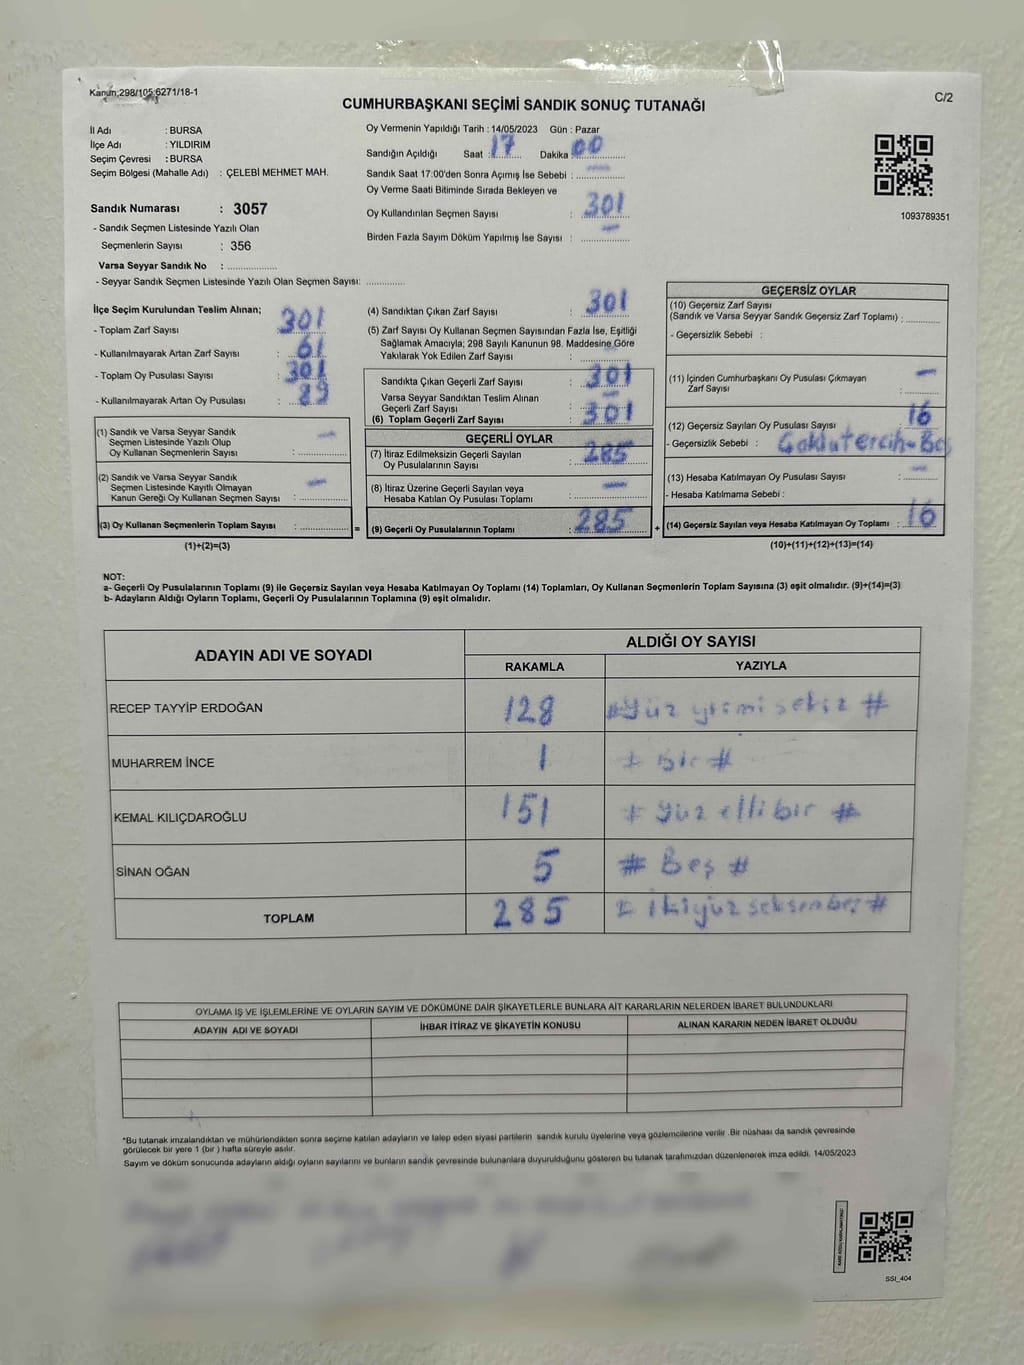 Kanun;298/105;6271/18-1
C/2
CUMHURBAŞKANI SEÇİMİ SANDIK SONUÇ TUTANAĞI
İl Adı : BURSA
İlçe Adı : YILDIRIM
Seçim Çevresi : BURSA
Seçim Bölgesi (Mahalle Adı) : ÇELEBİ MEHMET MAH.
Sandık Numarası : 3057
- Sandık Seçmen Listesinde Yazılı Olan
Seçmenlerin Sayısı : 356
Varsa Seyyar Sandık No : ................
- Seyyar Sandık Seçmen Listesinde Yazılı Olan Seçmen Sayısı: ............
Oy Vermenin Yapıldığı Tarih : 14/05/2023 Gün : Pazar
Sandığın Açıldığı Saat : 17 Dakika : 00
Sandık Saat 17:00'den Sonra Açımış İse Sebebi : —
Oy Verme Saati Bitiminde Sırada Bekleyen ve
Oy Kullandırılan Seçmen Sayısı : 301
Birden Fazla Sayım Döküm Yapılmış İse Sayısı : —
1093789351
İlçe Seçim Kurulundan Teslim Alınan;
- Toplam Zarf Sayısı : 301
- Kullanılmayarak Artan Zarf Sayısı : 61
- Toplam Oy Pusulası Sayısı : 301
- Kullanılmayarak Artan Oy Pusulası : 89
(1) Sandık ve Varsa Seyyar Sandık
Seçmen Listesinde Yazılı Olup
Oy Kullanan Seçmenlerin Sayısı : —
(2) Sandık ve Varsa Seyyar Sandık
Seçmen Listesinde Kayıtlı Olmayan
Kanun Gereği Oy Kullanan Seçmen Sayısı : —
(3) Oy Kullanan Seçmenlerin Toplam Sayısı : ............ =
(1)+(2)=(3)
(4) Sandıktan Çıkan Zarf Sayısı : 301
(5) Zarf Sayısı Oy Kullanan Seçmen Sayısından Fazla İse, Eşitliği
Sağlamak Amacıyla; 298 Sayılı Kanunun 98. Maddesine Göre
Yakılarak Yok Edilen Zarf Sayısı : ............
Sandıkta Çıkan Geçerli Zarf Sayısı : 301
Varsa Seyyar Sandıktan Teslim Alınan
Geçerli Zarf Sayısı : —
(6) Toplam Geçerli Zarf Sayısı : 301
GEÇERLİ OYLAR
(7) İtiraz Edilmeksizin Geçerli Sayılan
Oy Pusulalarının Sayısı : 285
(8) İtiraz Üzerine Geçerli Sayılan veya
Hesaba Katılan Oy Pusulası Toplamı : —
(9) Geçerli Oy Pusulalarının Toplamı : 285 +
GEÇERSİZ OYLAR
(10) Geçersiz Zarf Sayısı
(Sandık ve Varsa Seyyar Sandık Geçersiz Zarf Toplamı) : ............
- Geçersizlik Sebebi :
(11) İçinden Cumhurbaşkanı Oy Pusulası Çıkmayan
Zarf Sayısı : —
(12) Geçersiz Sayılan Oy Pusulası Sayısı : 16
- Geçersizlik Sebebi :
(13) Hesaba Katılmayan Oy Pusulası Sayısı : —
- Hesaba Katılmama Sebebi :
(14) Geçersiz Sayılan veya Hesaba Katılmayan Oy Toplamı : 16
(10)+(11)+(12)+(13)=(14)
NOT:
a- Geçerli Oy Pusulalarının Toplamı (9) ile Geçersiz Sayılan veya Hesaba Katılmayan Oy Toplamı (14) Toplamları, Oy Kullanan Seçmenlerin Toplam Sayısına (3) eşit olmalıdır. (9)+(14)=(3)
b- Adayların Aldığı Oyların Toplamı, Geçerli Oy Pusulalarının Toplamına (9) eşit olmalıdır.
ADAYIN ADI VE SOYADI ALDIĞI OY SAYISI
RAKAMLA YAZIYLA
RECEP TAYYİP ERDOĞAN 128 #Yüz yirmi sekiz #
MUHARREM İNCE 1 # Bir #
KEMAL KILIÇDAROĞLU 151 # Yüz ellibir #
SİNAN OĞAN 5 # Beş #
TOPLAM 285 # İkiyüz seksenbeş #
OYLAMA İŞ VE İŞLEMLERİNE VE OYLARIN SAYIM VE DÖKÜMÜNE DAİR ŞİKAYETLERLE BUNLARA AİT KARARLARIN NELERDEN İBARET BULUNDUKLARI
ADAYIN ADI VE SOYADI İHBAR İTİRAZ VE ŞİKAYETİN KONUSU ALINAN KARARIN NEDEN İBARET OLDUĞU
*Bu tutanak imzalandıktan ve mühürlendikten sonra seçime katılan adayların ve talep eden siyasi partilerin sandık kurulu üyelerine veya gözlemcilerine verilir .Bir nüshası da sandık çevresinde
görülecek bir yere 1 (bir ) hafta süreyle asılır.
Sayım ve döküm sonucunda adayların aldığı oyların sayılarını ve bunların sandık çevresinde bulunanlara duyurulduğunu gösteren bu tutanak tarafımızdan düzenlenerek imza edildi. 14/05/2023
SSI_404